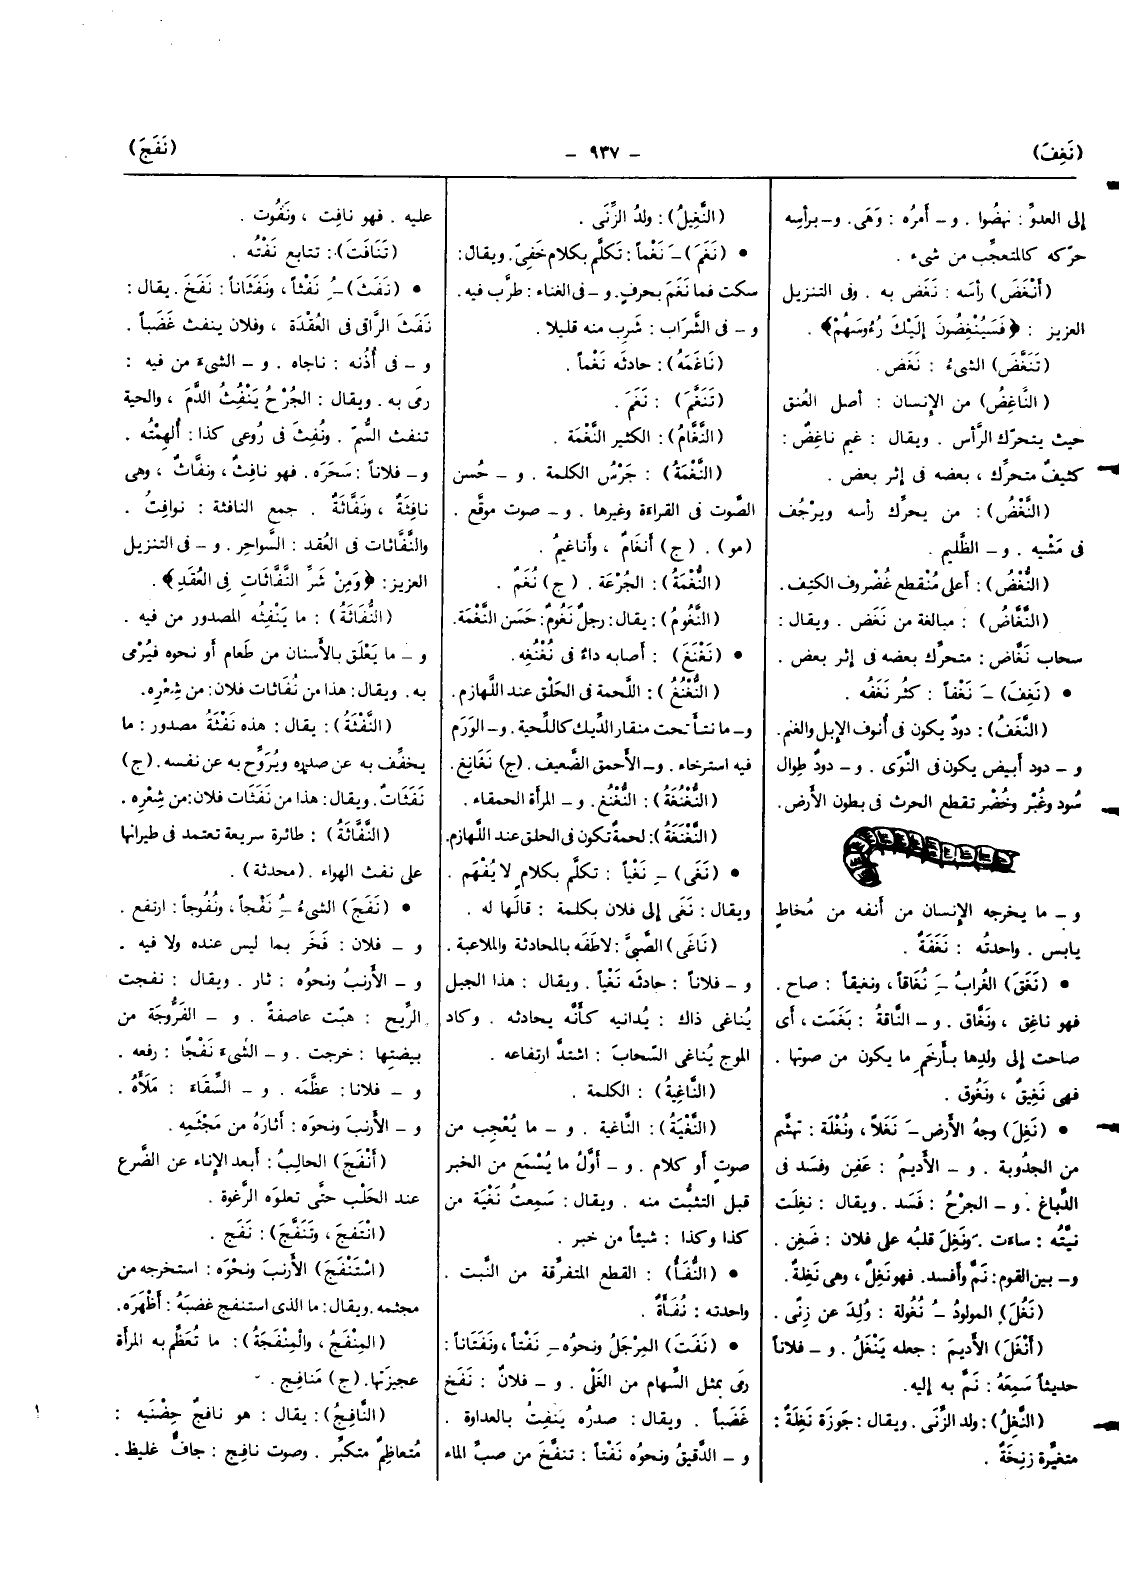 (نَغِفَ)
- ٩٣٧ -
(نَفَجَ)
إلى العدوِّ : نهضُوا . و - أمرُه : وَهَى. و - برأسِه
حرّكه كالمتعجِّب من شىء .
(أَنْغَضَ) رأسَه : نَغَض به . وفى التنزيل
العزيز : ﴿فَسَيُنْغِضُونَ إلَيْكَ رُءُوسَهُمْ﴾ .
(تَنَغَّضَ) الشىءُ : نَغَض .
(النَّاغِضُ) من الإنسان : أصل العُنق
حيث يتحرّك الرَّأس . ويقال : غيم ناغِضٌ :
كثيفٌ متحرِّك ، بعضه فى إثر بعض .
(النَّغْضُ) : من يحرِّك رأسه ويرْجُف
فى مَشْيه . و - الظَّليم .
(النُّغْضُ) : أعلى مُنْقطع غُضْروف الكتِف .
(النَّغَّاضُ) : مبالغة من نَغَض . ويقال :
سحاب نَغَّاض : متحرِّك بعضه فى إثر بعض .
• (نَغِفَ) -َ نَغْفاً : كثُر نَغَفُه .
(النَّغَفُ) : دودٌ يكون فى أنوف الإبل والغنم.
و - دود أبيض يكون فى النَّوَى . و - دودٌ طِوال
سُود وغُبْر وخُضْر تقطع الحرث فى بطون الأرض.
و - ما يخرجه الإنسان من أنفه من مُخاطٍ
يابس . واحدتُه : نَغَفَةٌ .
• (نَغَقَ) الغُرابُ -ِ نُغَاقاً ، ونغيقاً : صاح .
فهو ناغِق ، ونَغَّاق . و - النَّاقةُ : بَغَمَت ، أى
صاحت إلى ولدِها بأرخَمِ ما يكون من صوتها .
فهى نَغِيقٌ ، ونَغُوق .
• (نَغِلَ) وجهُ الأرض -َ نَغَلاً ، ونُغْلَة : تهشَّم
من الجدُوبة . و - الأديمُ : عَفِن وفسَد فى
الدِّباغ . و - الجرْحُ : فَسَد . ويقال : نغِلَت
نيَّتُه : ساءَت . ونَغِلَ قلبُه على فلان : ضَغِن .
و - بين القوم: نَمَّ وأفسد. فهو نَغِلٌ ، وهى نَغِلةٌ .
(نَغُلَ) المولودُ -ُ نُغُولة : وُلِدَ عن زِنًى .
(أَنْغَلَ) الأديمَ : جعله يَنْغَلُ . و - فلاناً
حديثاً سَمِعَهُ : نَمَّ به إليه.
(النَّغِلُ) : ولد الزِّنَى . ويقال : جَوزَة نَغِلَةٌ :
متغيِّرة زنِخَةٌ .
(النَّغِيلُ) : ولدُ الزِّنَى .
• (نَغَمَ) -َ نَغْماً : تَكلَّم بكلام خَفِىّ . ويقال :
سكت فما نَغَمَ بحرفٍ. و - فى الغناء : طرَّب فيه .
و - فى الشَّراب : شَرِب منه قليلا .
(نَاغَمَهُ) : حادثَه نَغْماً .
(تَنَغَّمَ) : نَغَمَ .
(النَّغَّامُ) : الكثير النَّغْمة .
(النَّغْمَةُ) : جَرْسُ الكلمة . و - حُسن
الصَّوت فى القراءة وغيرها . و - صوت موقَّع .
(مو) . (ج) أنغَامٌ ، وأناغيمُ .
(النُّغْمَةُ) : الجُرْعة . (ج) نُغَمٌ .
(النَّغُومُ) : يقال : رجلٌ نَغُومٌ: حَسَن النَّغْمَة.
• (نَغْنَغَ) : أصابه داءٌ فى نُغْنُغِه .
(النُّغْنُغُ) : اللَّحمة فى الحَلْق عند اللَّهازِم .
و - ما نتأ تحت منقار الدِّيك كاللِّحية . و - الوَرَم
فيه استرخاء . و - الأحمق الضَّعيف . (ج) نَغَانِغ.
(النُّغْنُغَةُ) : النُّغْنُغ. و - المرأة الحمقاء .
(النَّغْنَغَةُ) : لحمةٌ تكون فى الحلق عند اللَّهازم.
• (نَغَى) -ِ نَغْياً : تكلَّم بكلامٍ لا يُفْهَم .
ويقال : نَغَى إلى فلان بكلمة : قالَها له .
(نَاغَى) الصَّبىَّ : لاطَفَه بالمحادثة والملاعبة .
و - فلاناً : حادثَه نَغْياً . ويقال : هذا الجبل
يُناغى ذاك : يُدانيه كأَنَّه يحادثه . وكاد
الموج يُناغى السَّحابَ : اشتدَّ ارتفاعه .
(النَّاغِيةُ) : الكلمة .
(النَّغْيَةُ) : النَّاغية . و - ما يُعْجِب من
صوتٍ أو كلام . و - أوَّلُ ما يُسْمَع من الخبر
قبل التثبُّت منه . ويقال : سَمِعتُ نَغْيَة من
كذا وكذا : شيئاً من خبر .
• (النُّفَأُ) : القطع المتفرِّقة من النَّبت .
واحدته : نُفَأَةٌ .
• (نَفَتَ) المِرْجَلُ ونحوُه -ِ نَفْتاً ، ونَفَتَاناً :
رمَى بمثل السِّهام من الغَلْى . و - فلانٌ : نَفَخ
غَضَباً . ويقال : صدرُه يَنفِتُ بالعداوة .
و - الدَّقيقُ ونحوُه نَفْتاً : تنفَّخَ من صبِّ الماء
عليه . فهو نافِت ، ونَفُوت .
(تَنَافَتَ) : تتابع نَفْتُه .
• (نَفَثَ) -ُِ نَفْثاً ، ونَفَثَاناً : نَفَخَ . يقال :
نَفَثَ الرَّاقى فى العُقْدَة ، وفلان ينفث غَضَباً .
و - فى أُذُنه : ناجاه . و - الشىءَ من فيه :
رمَى به . ويقال : الجُرْحُ يَنْفُثُ الدَّمَ ، والحية
تنفث السُّمّ . ونُفِثَ فى رُوعى كذا : أُلهِمْتُه .
و - فلاناً : سَحَرَه . فهو نافِثٌ ، ونفَّاثٌ ، وهى
نافِثَةٌ ، ونَفَّاثَةٌ . جمع النافثة : نوافِثُ .
والنَّفَّاثات فى العُقد : السَّواحِر . و - فى التنزيل
العزيز : ﴿وَمِنْ شَرِّ النَّفَّاثَاتِ فِى العُقَدِ﴾ .
(النُّفَاثَةُ) : ما يَنْفِثُه المصدور من فيه .
و - ما يَعْلَق بالأَسنان من طَعام أَو نحوه فيُرْمَى
به . ويقال : هذا من نُفَاثات فلان : من شِعْرِه .
(النَّفْثَةُ) : يقال : هذه نَفْثَةُ مصدور : ما
يخفِّف به عن صدره ويُرَوِّح به عن نفسه . (ج)
نَفَثَاتٌ. ويقال : هذا من نَفَثَات فلان: من شِعْرِه .
(النَّفَّاثَةُ) : طائرة سريعة تعتمد فى طيرانها
على نفث الهواء . (محدثة) .
• (نَفَجَ) الشىءُ -ُ نَفْجاً ، ونُفُوجاً : ارتفع .
و - فلان : فَخَر بما ليس عنده ولا فيه .
و - الأَرنبُ ونحوُه : ثار . ويقال : نفجت
الرِّيح : هبَّت عاصفةً . و - الفَرُّوجَة من
بيضتِها : خرجت . و - الشَّىءَ نَفْجًا : رفعه .
و - فلانا : عظَّمه . و - السِّقاءَ : مَلَأَهُ .
و - الأَرنبَ ونحوَه : أثارَهُ من مَجْثَمِه .
(أَنْفَجَ) الحالِبُ : أبعد الإناء عن الضَّرع
عند الحَلْب حتَّى تعلوَه الرَّغوة .
(انْتَفجَ ، وتَنَفَّجَ) : نَفَج .
(اسْتَنْفَجَ) الأَرنبَ ونحوَه : استخرجه من
مجثمه . ويقال : ما الذى استنفج غضبَهُ : أظْهَرَه.
(المِنْفَجُ ، والمِنْفَجَةُ) : ما تُعَظِّم به المرأة
عجيزَتها . (ج) مَنَافِج .
(النَّافِجُ) : يقال : هو نافجٌ حِضْنَيه :
مُتعاظِمٌ متكبِّر . وصوت نافِج : جافٌّ غليظ .